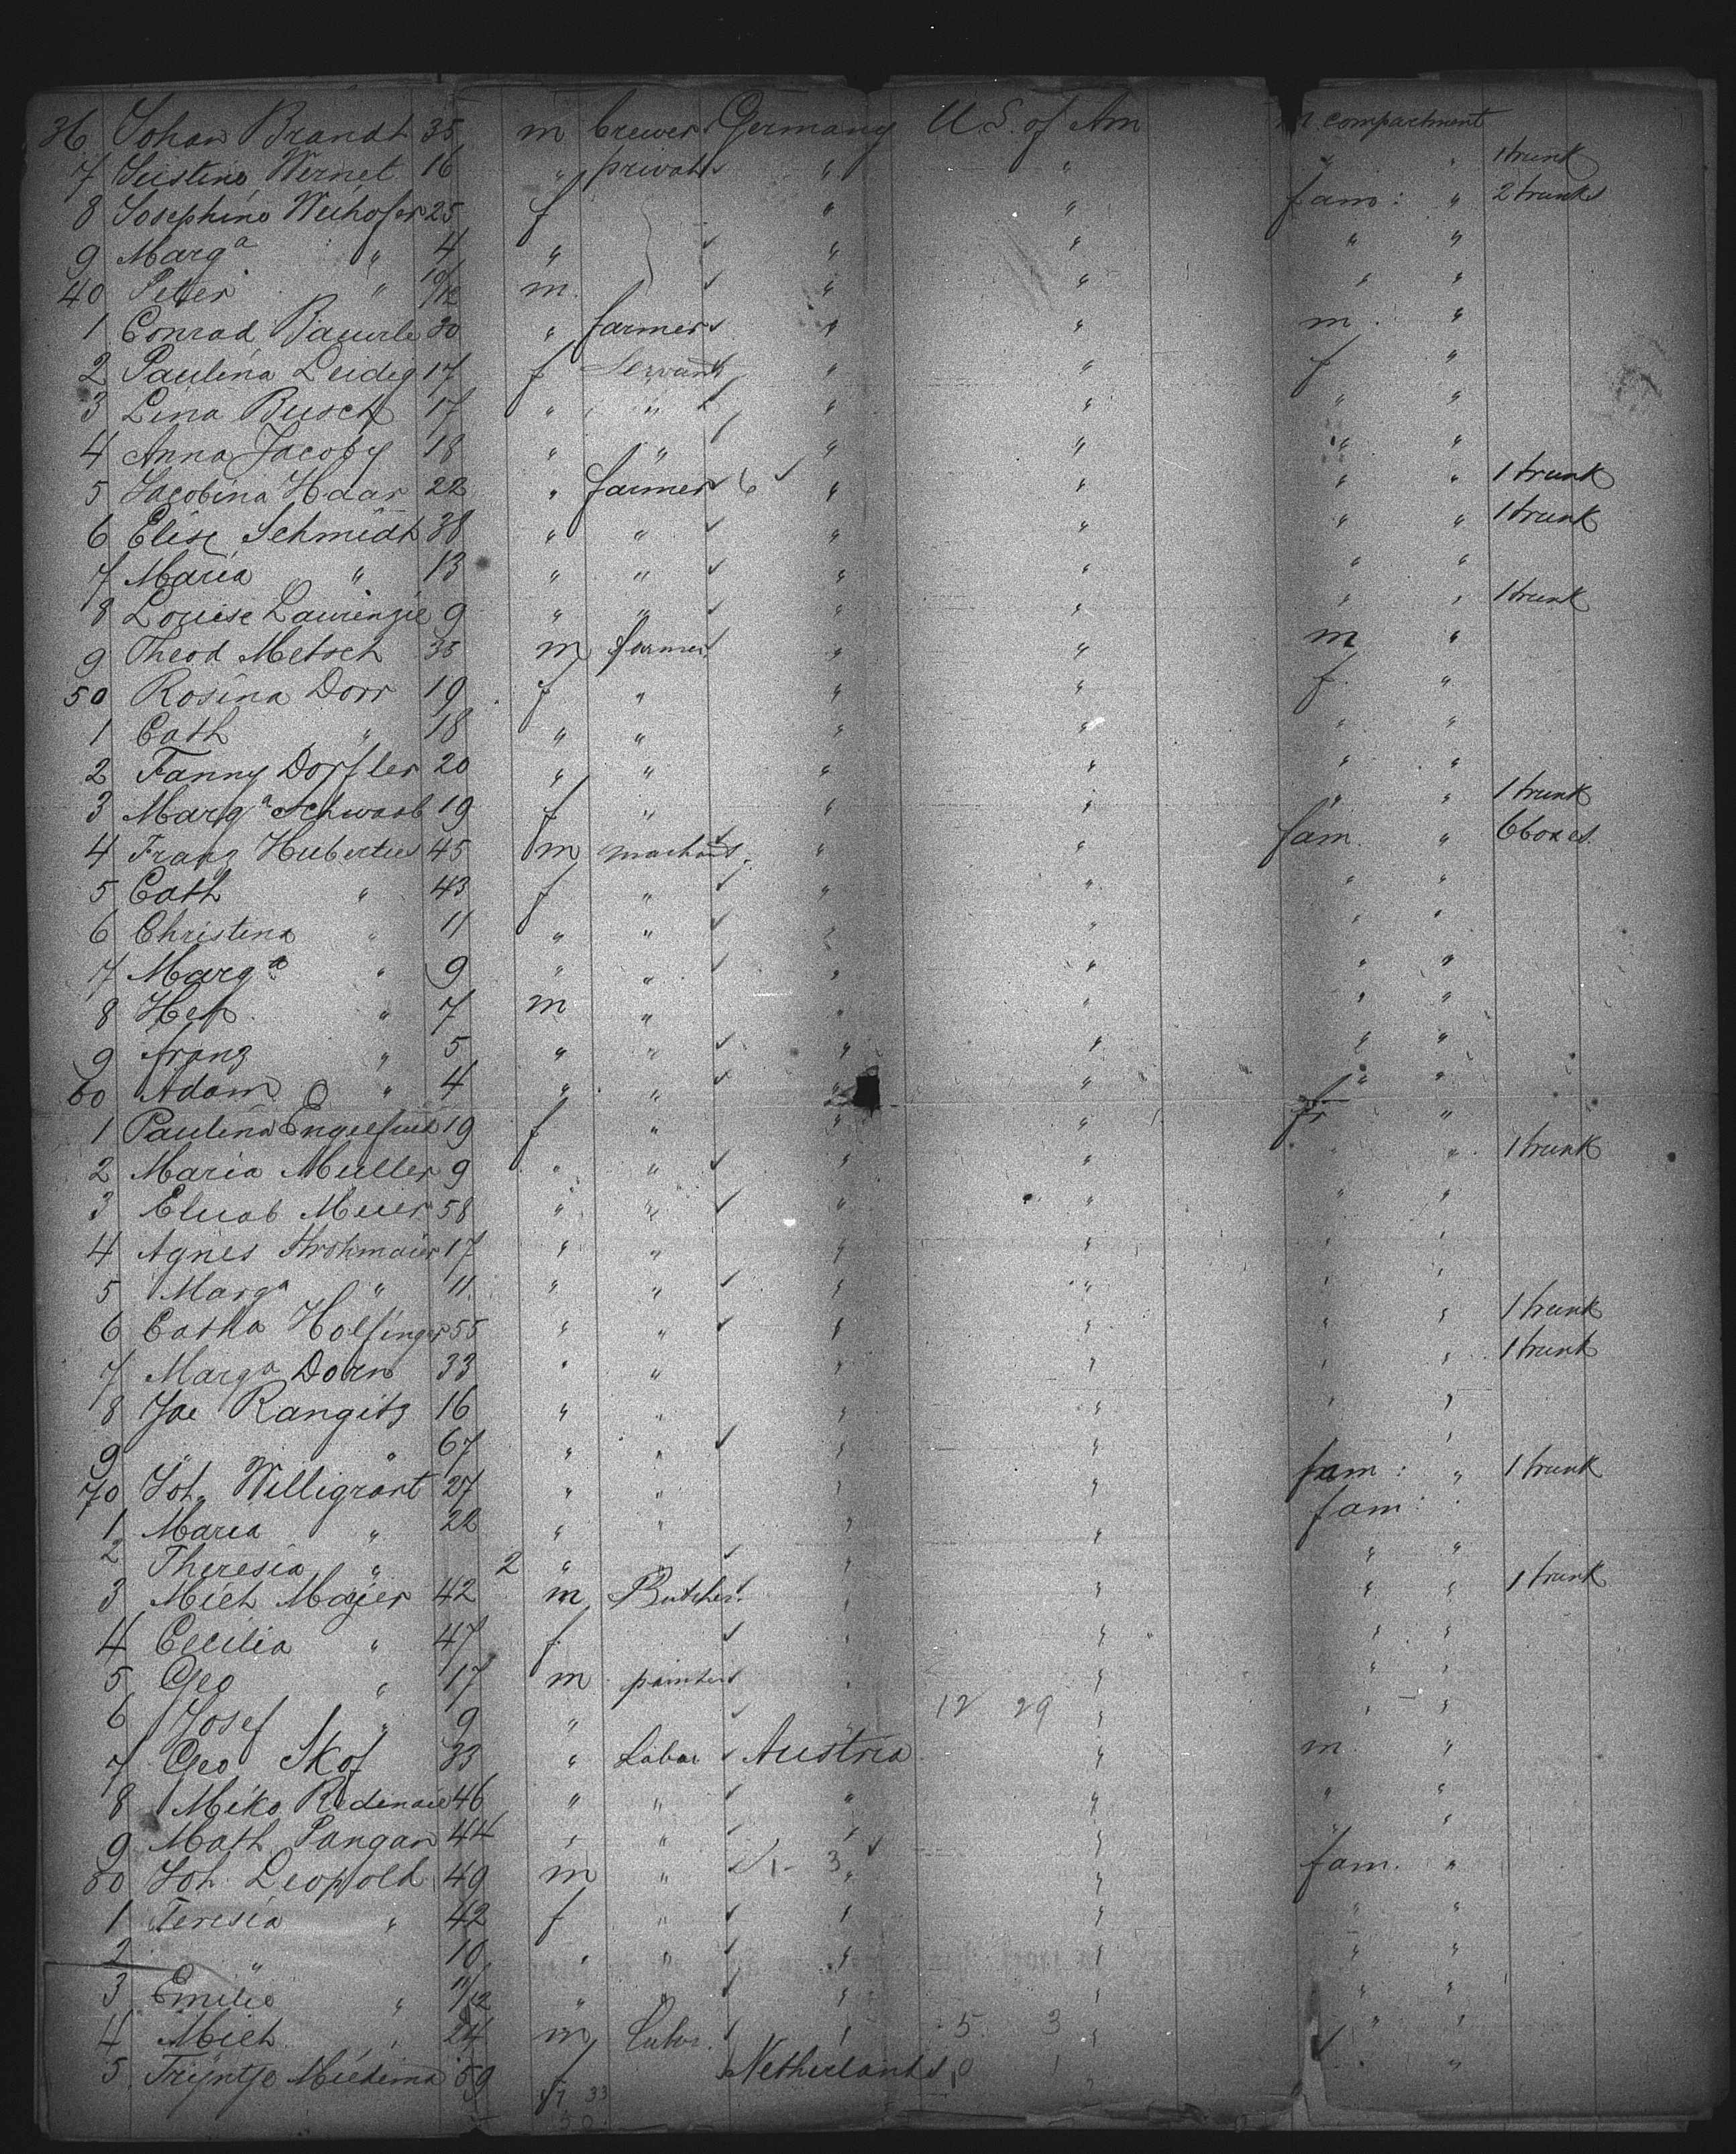 36 Johan Brandt 35 m brewer Germany U.S. of Am m compartment
7 Wernet 16 " private " " " " 1 trunk
8 Josephine Weihofer 25 f " " fam: " 2 trunks
9 Marga " 4 " " " " "
40 Peter " 10/12 m " " " "
1 Conrad Bauerle 30 " farmer " " m "
2 Paulina Leidig 17 f Servant " " f "
3 Lina Busch 17 " " " " " "
4 Anna Jacoby 18 " " " " " "
5 Jacobina Haar 22 " farmer 6 " " " " 1 trunk
6 Elise Schmidt 38 " " " " " " 1 trunk
7 Maria " 13 " " " " " "
8 Louise Laurenzie 9 " " " " " " 1 trunk
9 Theod Metsch 35 m farmer " " m "
50 Rosina Dorr 19 f " " " f "
1 Cath " 18 " " " " " "
2 Fanny Dorfler 20 " " " " " "
3 Marga Schwaab 19 f " " " " " 1 trunk
4 Franz Hubertus 45 m " " fam " 6 boxes
5 Cath " 43 f " " " " "
6 Christina " 11 " " " " " "
7 Marga " 9 " " " " " "
8 " 7 m " " " " "
9 Franz " 5 " " " " " "
60 Adam " 4 " " " " " "
1 Paulina 19 f " " " "
2 Maria Muller 9 " " " " " " 1 trunk
3 Elisab Meier 58 " " " " " "
4 Agnes Strohmaier 17 " " " " " "
5 Marga " 11 " " " " " "
6 Catha Holfinger 55 " " " " " " 1 trunk
7 Marga Dorn 33 " " " " " " 1 trunk
8 Rangitz 16 " " " " " "
9 " " 67 " " " " "
70 Joh. Willigrant 27 " " " " fam: " 1 trunk
1 Maria " 22 " " " " fam:
2 Theresia " 2 " " " "
3 Mich Majer 42 m Butcher " " " " 1 trunk
4 Cecilia " 47 f " " " "
5 Geo " 17 m painter " " " "
6 Josef " 9 " " 12 29 " " "
7 Geo Skof 33 " Labor Austria " m "
8 Miko 46 " " " " " "
9 Math Pangar 44 " " " " " "
80 Joh. Leopold 49 m " 1 - 3 " " fam. "
1 Teresia " 42 f " " " " "
2 " 10 " " " " " "
3 Emilie " 11/12 " " " " " "
4 Mich " 24 m Labr. " 5 3 " " "
5 Trijntje Miedema 59 f Netherlands 0 1 " "